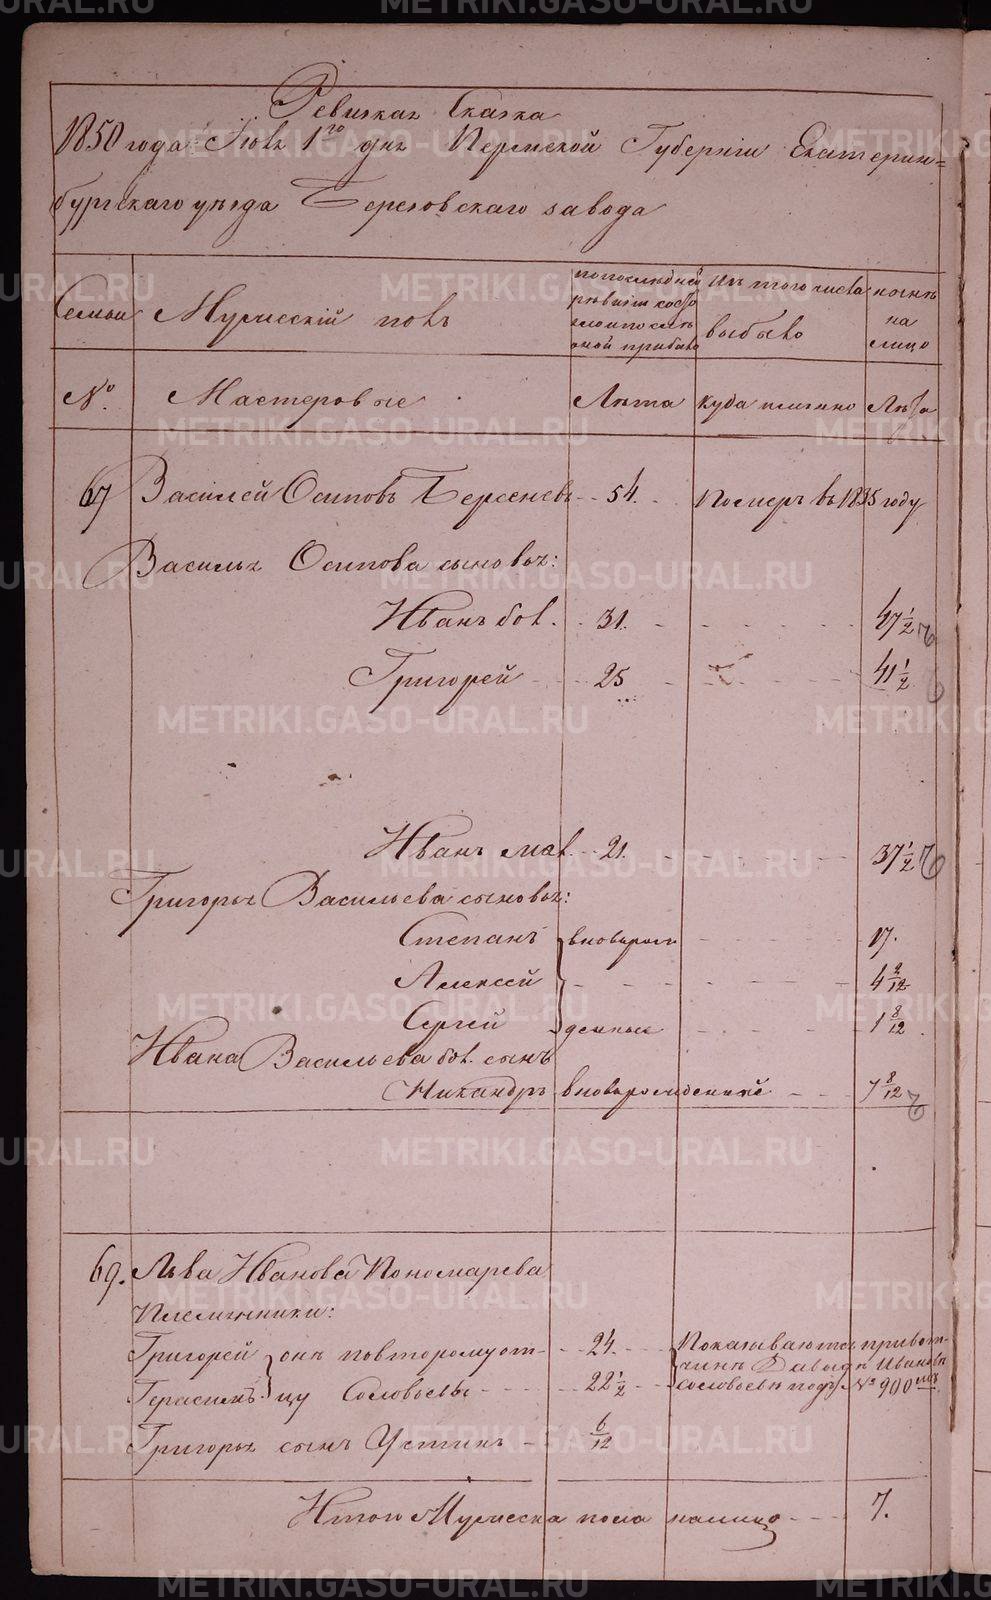 Ревизкая Сказка
1850 года Июня 1го дня Пермской Губернiи Екатерин=
бургскаго уѣзда Березовскаго завода
Семьи
Мужескiй полъ
попоследней ревизiи состояло и после оной прибыло
Изъ того числа выбыло
ныне на лицо
№
Мастеровые
Лѣта
куда именно
Лѣта
67 Василей Осиповъ Берсеневъ 54. Померъ въ 1835 году
Василья Осипова сыновья:
Иванъ бол. 31. 47 1/2
Григорей 25 41 1/2
Иванъ мал. 21. 37 1/2
Григорья Васильева сыновья:
Степанъ вноврож 17.
Алексей 4 2/12
Сергей денные 1 8/12
Ивана Васильева бол. сынъ
Никандръ вноврожденный 7 8/12
69. Льва Иванова Пономарева
Племянники:
Григорей онъ повторому от 24. Показываются при вот-
Герасимъ цу Соловьевы 22 1/2 чиме Давыде Иванове
Соловьеве под № 900мъ
Григорья сынъ Устинъ 6/12
Итого Мужеска пола налицо 7.
METRIKI.GASO-URAL.RU